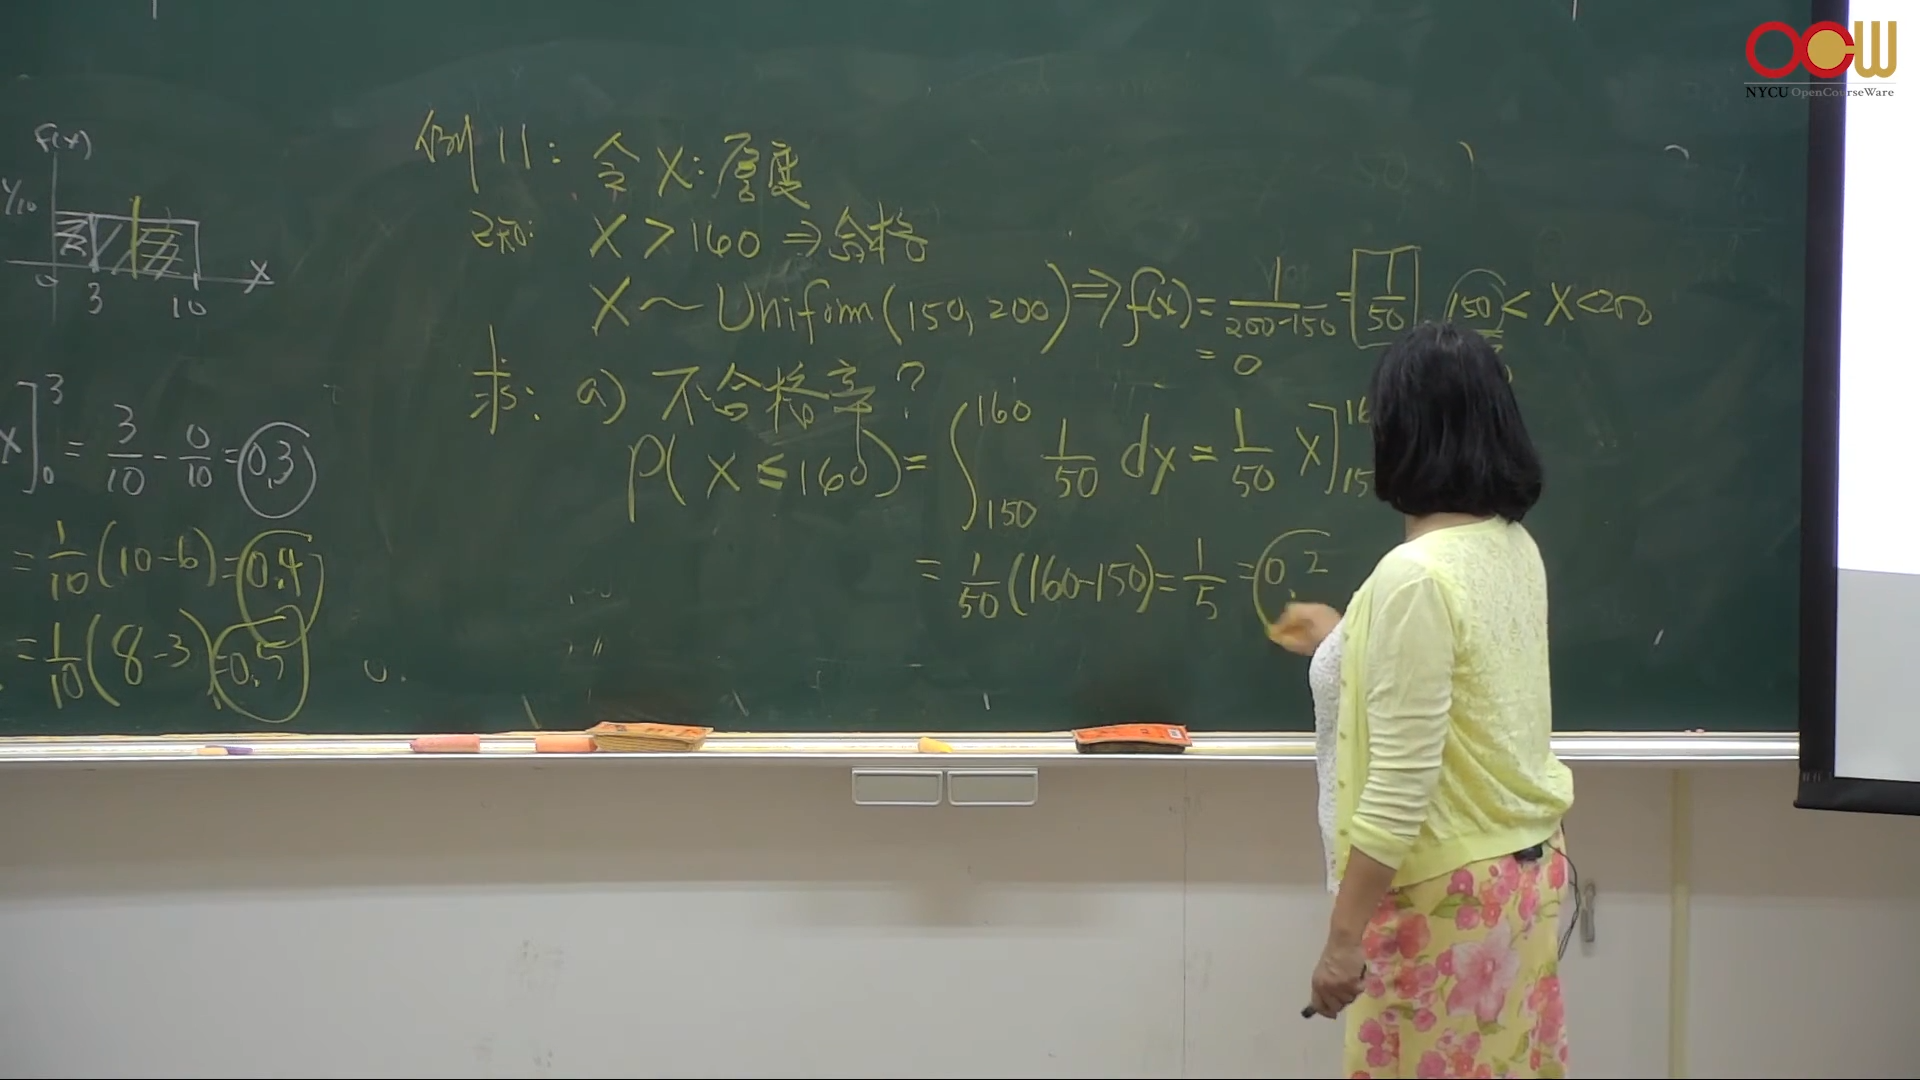 OCW
NYCU OpenCourseWare
f(x)
1/10
0 3 10 X
x]₀³ = 3/10 - 0/10 = 0.3
= 1/10 (10-6) = 0.4
= 1/10 (8-3) = 0.5
例11: 令X:厚度
已知: X > 160 ⇒ 合格
X ~ Uniform(150, 200) ⇒ f(x) = 1/(200-150) = 1/50 , 150 < X < 200
= 0
求: a) 不合格率?
P(X ≤ 160) = ∫₁₅₀¹⁶⁰ 1/50 dx = 1/50 X]
= 1/50 (160-150) = 1/5 = 0.2